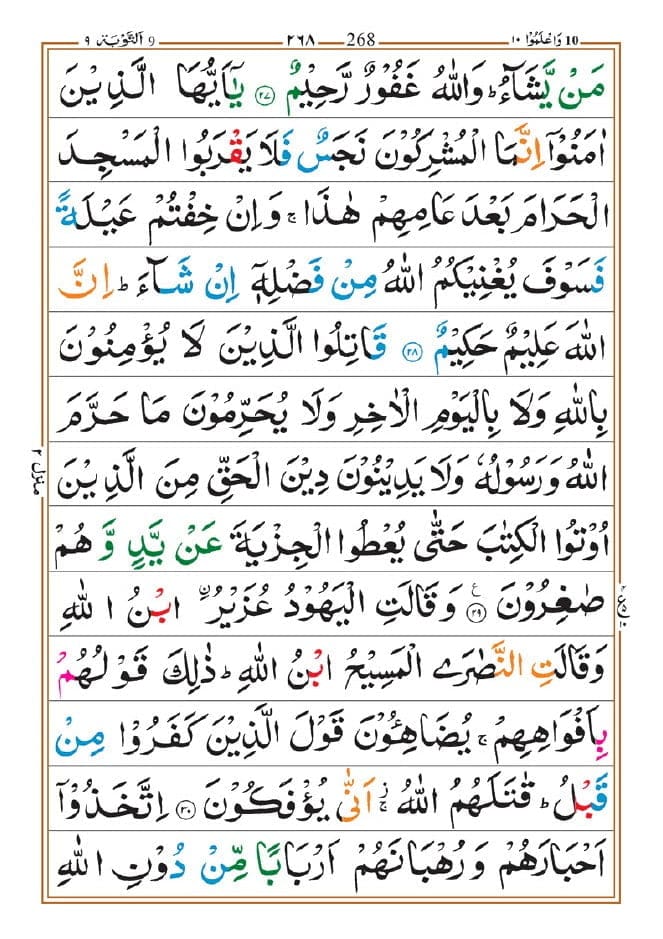 ١٠ وَاعْلَمُوْٓا 10 268 ٢٦٨ 9 اَلتَّوْبَة ٩
مَنْ يَّشَآءُ ؕ وَاللّٰهُ غَفُوْرٌ رَّحِيْمٌ ﴿۲۷﴾ يٰۤاَيُّهَا الَّذِيْنَ
اٰمَنُوْۤا اِنَّمَا الْمُشْرِكُوْنَ نَجَسٌ فَلَا يَقْرَبُوا الْمَسْجِدَ
الْحَرَامَ بَعْدَ عَامِهِمْ هٰذَا ۚ وَاِنْ خِفْتُمْ عَيْلَةً
فَسَوْفَ يُغْنِيْكُمُ اللّٰهُ مِنْ فَضْلِهٖۤ اِنْ شَآءَ ؕ اِنَّ
اللّٰهَ عَلِيْمٌ حَكِيْمٌ ﴿۲۸﴾ قَاتِلُوا الَّذِيْنَ لَا يُؤْمِنُوْنَ
بِاللّٰهِ وَلَا بِالْيَوْمِ الْاٰخِرِ وَلَا يُحَرِّمُوْنَ مَا حَرَّمَ
اللّٰهُ وَرَسُوْلُهٗ وَلَا يَدِيْنُوْنَ دِيْنَ الْحَقِّ مِنَ الَّذِيْنَ
اُوْتُوا الْكِتٰبَ حَتّٰى يُعْطُوا الْجِزْيَةَ عَنْ يَّدٍ وَّ هُمْ
صٰغِرُوْنَ ﴿۲۹﴾ ع وَقَالَتِ الْيَهُوْدُ عُزَيْرُ ۨ ابْنُ اللّٰهِ
وَقَالَتِ النَّصٰرَى الْمَسِيْحُ ابْنُ اللّٰهِ ؕ ذٰلِكَ قَوْلُهُمْ
بِاَفْوَاهِهِمْ ۚ يُضَاهِـُٔوْنَ قَوْلَ الَّذِيْنَ كَفَرُوْا مِنْ
قَبْلُ ؕ قٰتَلَهُمُ اللّٰهُ ۚ اَنّٰى يُؤْفَكُوْنَ ﴿۳۰﴾ اِتَّخَذُوْۤا
اَحْبَارَهُمْ وَرُهْبَانَهُمْ اَرْبَابًا مِّنْ دُوْنِ اللّٰهِ
منزل ٢